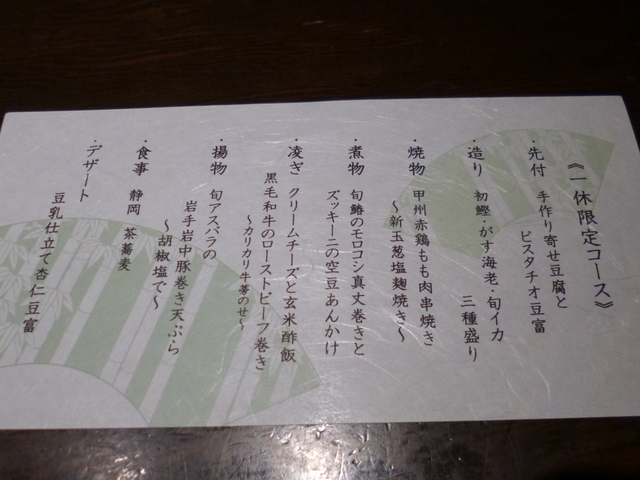 《一休限定コース》
・先付　手作り寄せ豆腐と
ピスタチオ豆富
・造り　初鰹・がす海老・旬イカ　三種盛り
・焼物　甲州赤鶏もも肉串焼き
～新玉葱塩麹焼き～
・煮物　旬鰆のモロコシ真丈巻きと
ズッキーニの空豆あんかけ
・凌ぎ　クリームチーズと玄米酢飯
黒毛和牛のローストビーフ巻き
～カリカリ牛蒡のせ～
・揚物　旬アスパラの
岩手岩中豚巻き天ぷら
～胡椒塩で～
・食事　静岡　茶蕎麦
・デザート
豆乳仕立て杏仁豆富